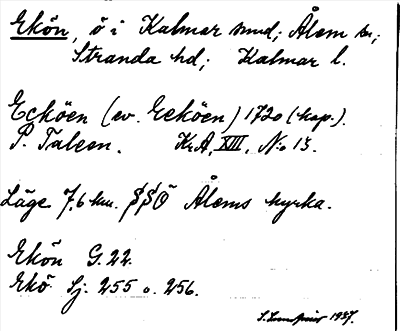 Ekön, ö i Kalmar sund; Ålem sn;
Stranda hd; Kalmar l.
Ecköen (ev. Eeköen) 1720 (kop.).
P. Taleen. Kr.A, XIII, No 13.
Läge 7,6 km. SSÖ Ålems kyrka.
Ekön G. 22.
Ekö Sj. 255 o. 256.
1937.